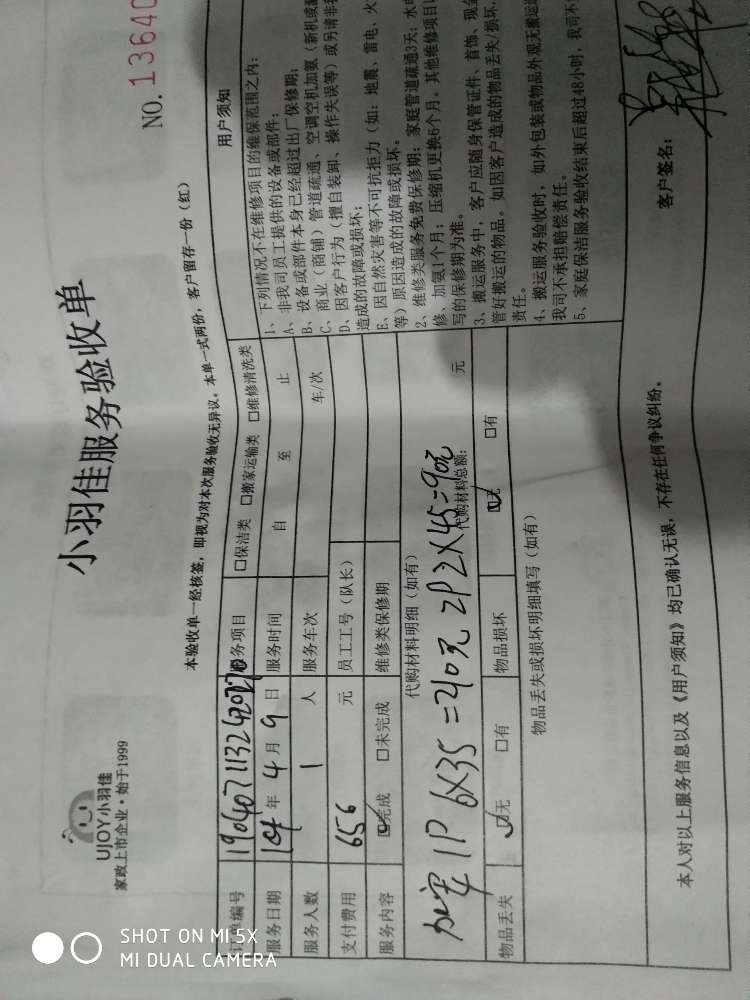 UJOY小羽佳
家政上市企业·始于1999
小羽佳服务验收单
NO. 13640
本验收单一经核签，即视为对本次服务验收无异议。本单一式两份，客户留存一份（红）
订单编号 服务项目 □保洁类 □搬家运输类 □维修清洗类
服务日期 年 4 月 9 日 服务时间 自 至 止
服务人数 1 人 服务车次 车/次
支付费用 656 元 员工工号（队长）
服务内容 ☑完成 □未完成 维修类保修期
代购材料明细（如有）
1P 6X35=210元 2P 2X45=90元
代购材料总额： 元
物品丢失 ☑无 □有 物品损坏 ☑无 □有
物品丢失或损坏明细填写（如有）
用户须知
1、下列情况不在维修项目的维保范围之内：
A、非我司员工提供的设备或部件；
B、设备或部件本身已经超过出厂保修期；
C、商业（商铺）管道疏通、空调空机加氨（新机或
D、因客户行为（擅自装卸、操作失误等）或另请非
造成的故障或损坏；
E、因自然灾害等不可抗拒力（如：地震、雷电、火
等）原因造成的故障或损坏。
2、维修类服务免费保修期：家庭管道疏通3天；水
修、加氨1个月；压缩机更换6个月。其他维修项目
写的保修期为准。
3、搬运服务中，客户应随身保管证件、首饰、现金
管好搬运的物品。如因客户造成的物品丢失/损坏，
责任。
4、搬运服务验收时，如外包装或物品外观无搬运
我司不承担赔偿责任。
5、家庭保洁服务验收结束后超过48小时，我司不
本人对以上服务信息以及《用户须知》均已确认无误，不存在任何争议纠纷。
客户签名：
SHOT ON MI 5X
MI DUAL CAMERA